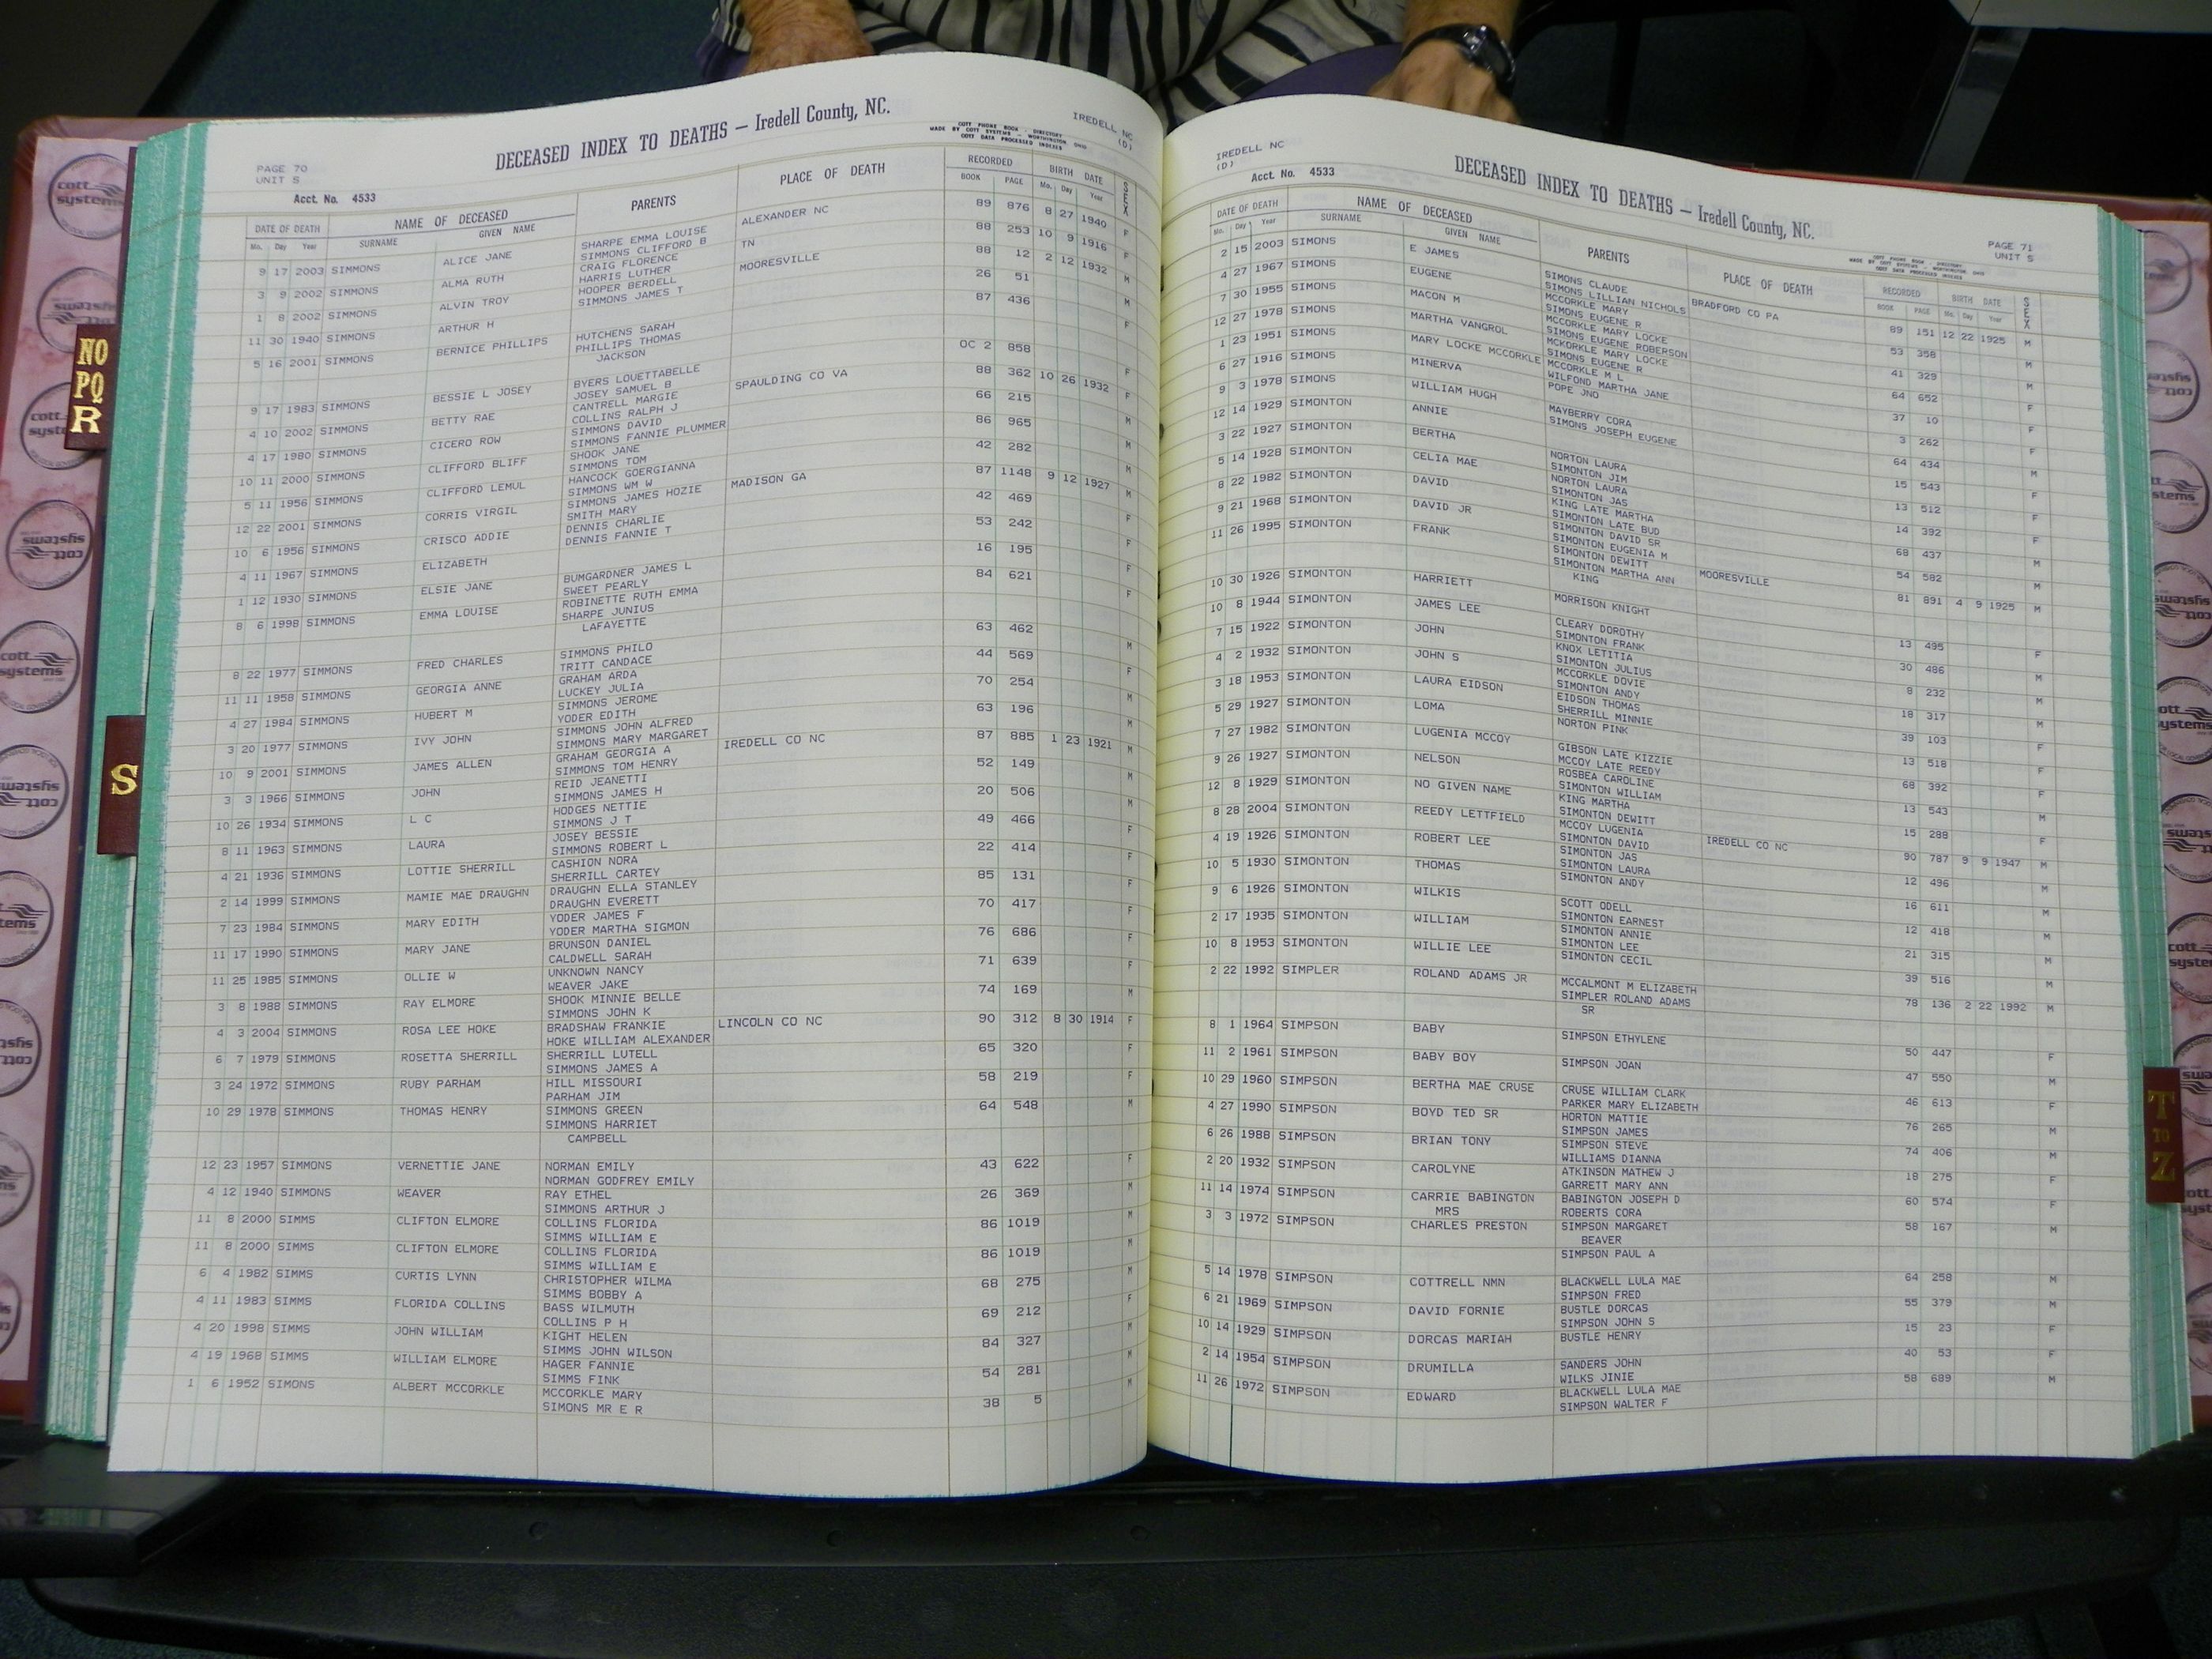 PAGE 70
UNIT S
DECEASED INDEX TO DEATHS — Iredell County, NC.
COTT PHONE BOOK - DIRECTORY
MADE BY COTT SYSTEMS - WORTHINGTON, OHIO
COTT DATA PROCESSED INDEXES
IREDELL NC
(D)
Acct. No. 4533
DATE OF DEATH NAME OF DECEASED PARENTS PLACE OF DEATH RECORDED BIRTH DATE SEX
Mo. Day Year SURNAME GIVEN NAME BOOK PAGE Mo. Day Year
9 17 2003 SIMMONS ALICE JANE SHARPE EMMA LOUISE ALEXANDER NC 89 876 8 27 1940 F
SIMMONS CLIFFORD B
3 9 2002 SIMMONS ALMA RUTH CRAIG FLORENCE TN 88 253 10 9 1916 F
HARRIS LUTHER
1 8 2002 SIMMONS ALVIN TROY HOOPER BERDELL MOORESVILLE 88 12 2 12 1932 M
SIMMONS JAMES T
11 30 1940 SIMMONS ARTHUR H 26 51 M
5 16 2001 SIMMONS BERNICE PHILLIPS HUTCHENS SARAH 87 436 F
PHILLIPS THOMAS
JACKSON
9 17 1983 SIMMONS BESSIE L JOSEY BYERS LOUETTABELLE OC 2 858 F
JOSEY SAMUEL B
4 10 2002 SIMMONS BETTY RAE CANTRELL MARGIE SPAULDING CO VA 88 362 10 26 1932
COLLINS RALPH J
4 17 1980 SIMMONS CICERO ROW SIMMONS DAVID 66 215 M
SIMMONS FANNIE PLUMMER
10 11 2000 SIMMONS CLIFFORD BLIFF SHOOK JANE 86 965 M
SIMMONS TOM
5 11 1956 SIMMONS CLIFFORD LEMUL HANCOCK GOERGIANNA 42 282
SIMMONS WM W
12 22 2001 SIMMONS CORRIS VIRGIL SIMMONS JAMES HOZIE MADISON GA 87 1148 9 12 1927 M
SMITH MARY
10 6 1956 SIMMONS CRISCO ADDIE DENNIS CHARLIE 42 469 F
DENNIS FANNIE T
4 11 1967 SIMMONS ELIZABETH 53 242 F
1 12 1930 SIMMONS ELSIE JANE BUMGARDNER JAMES L 16 195 F
SWEET PEARLY
8 6 1998 SIMMONS EMMA LOUISE ROBINETTE RUTH EMMA 84 621
SHARPE JUNIUS
LAFAYETTE
8 22 1977 SIMMONS FRED CHARLES SIMMONS PHILO 63 462 M
TRITT CANDACE
11 11 1958 SIMMONS GEORGIA ANNE GRAHAM ARDA 44 569 F
LUCKEY JULIA
4 27 1984 SIMMONS HUBERT M SIMMONS JEROME 70 254 M
YODER EDITH
3 20 1977 SIMMONS IVY JOHN SIMMONS JOHN ALFRED 63 196 M
SIMMONS MARY MARGARET
10 9 2001 SIMMONS JAMES ALLEN GRAHAM GEORGIA A IREDELL CO NC 87 885 1 23 1921 M
SIMMONS TOM HENRY
3 3 1966 SIMMONS JOHN REID JEANETTI 52 149 M
SIMMONS JAMES H
10 26 1934 SIMMONS L C HODGES NETTIE 20 506 M
SIMMONS J T
8 11 1963 SIMMONS LAURA JOSEY BESSIE 49 466 F
SIMMONS ROBERT L
4 21 1936 SIMMONS LOTTIE SHERRILL CASHION NORA 22 414 F
SHERRILL CARTEY
2 14 1999 SIMMONS MAMIE MAE DRAUGHN DRAUGHN ELLA STANLEY 85 131 F
DRAUGHN EVERETT
7 23 1984 SIMMONS MARY EDITH YODER JAMES F 70 417 F
YODER MARTHA SIGMON
11 17 1990 SIMMONS MARY JANE BRUNSON DANIEL 76 686 F
CALDWELL SARAH
11 25 1985 SIMMONS OLLIE W UNKNOWN NANCY 71 639 F
WEAVER JAKE
3 8 1988 SIMMONS RAY ELMORE SHOOK MINNIE BELLE 74 169 M
SIMMONS JOHN K
4 3 2004 SIMMONS ROSA LEE HOKE BRADSHAW FRANKIE LINCOLN CO NC 90 312 8 30 1914 F
HOKE WILLIAM ALEXANDER
6 7 1979 SIMMONS ROSETTA SHERRILL SHERRILL LUTELL 65 320 F
SIMMONS JAMES A
3 24 1972 SIMMONS RUBY PARHAM HILL MISSOURI 58 219 F
PARHAM JIM
10 29 1978 SIMMONS THOMAS HENRY SIMMONS GREEN 64 548 M
SIMMONS HARRIET
CAMPBELL
12 23 1957 SIMMONS VERNETTIE JANE NORMAN EMILY 43 622 F
NORMAN GODFREY EMILY
4 12 1940 SIMMONS WEAVER RAY ETHEL 26 369 M
SIMMONS ARTHUR J
11 8 2000 SIMMS CLIFTON ELMORE COLLINS FLORIDA 86 1019 M
SIMMS WILLIAM E
11 8 2000 SIMMS CLIFTON ELMORE COLLINS FLORIDA 86 1019 M
SIMMS WILLIAM E
6 4 1982 SIMMS CURTIS LYNN CHRISTOPHER WILMA 68 275 M
SIMMS BOBBY A
4 11 1983 SIMMS FLORIDA COLLINS BASS WILMUTH 69 212 F
COLLINS P H
4 20 1998 SIMMS JOHN WILLIAM KIGHT HELEN 84 327 M
SIMMS JOHN WILSON
4 19 1968 SIMMS WILLIAM ELMORE HAGER FANNIE 54 281 M
SIMMS FINK
1 6 1952 SIMONS ALBERT MCCORKLE MCCORKLE MARY 38 5 M
SIMONS MR E R
IREDELL NC
(D)
Acct. No. 4533
DECEASED INDEX TO DEATHS — Iredell County, NC.
COTT PHONE BOOK - DIRECTORY
MADE BY COTT SYSTEMS - WORTHINGTON, OHIO
COTT DATA PROCESSED INDEXES
PAGE 71
UNIT S
DATE OF DEATH NAME OF DECEASED PARENTS PLACE OF DEATH RECORDED BIRTH DATE SEX
Mo. Day Year SURNAME GIVEN NAME BOOK PAGE Mo. Day Year
2 15 2003 SIMONS E JAMES SIMONS CLAUDE BRADFORD CO PA 89 151 12 22 1925 M
SIMONS LILLIAN NICHOLS
4 27 1967 SIMONS EUGENE MCCORKLE MARY 53 358 M
SIMONS EUGENE R
7 30 1955 SIMONS MACON M MCCORKLE MARY LOCKE 41 329 M
SIMONS EUGENE ROBERSON
12 27 1978 SIMONS MARTHA VANGROL MCKORKLE MARY LOCKE 64 652 F
SIMONS EUGENE R
1 23 1951 SIMONS MARY LOCKE MCCORKLE MCCORKLE M L 37 10 F
WILFOND MARTHA JANE
6 27 1916 SIMONS MINERVA POPE JNO 3 262 F
9 3 1978 SIMONS WILLIAM HUGH MAYBERRY CORA 64 434 M
SIMONS JOSEPH EUGENE
12 14 1929 SIMONTON ANNIE NORTON LAURA 15 543 F
SIMONTON JIM
3 22 1927 SIMONTON BERTHA NORTON LAURA 13 512 F
SIMONTON JAS
5 14 1928 SIMONTON CELIA MAE KING LATE MARTHA 14 392 F
SIMONTON LATE BUD
8 22 1982 SIMONTON DAVID SIMONTON DAVID SR 68 437 M
SIMONTON EUGENIA M
9 21 1968 SIMONTON DAVID JR SIMONTON DEWITT 54 582 M
SIMONTON MARTHA ANN
KING
11 26 1995 SIMONTON FRANK MORRISON KNIGHT MOORESVILLE 81 891 4 9 1925 M
10 30 1926 SIMONTON HARRIETT 13 495 F
10 8 1944 SIMONTON JAMES LEE CLEARY DOROTHY 30 486 M
SIMONTON FRANK
7 15 1922 SIMONTON JOHN KNOX LETITIA 8 232 M
SIMONTON JULIUS
4 2 1932 SIMONTON JOHN S MCCORKLE DOVIE 18 317 M
SIMONTON ANDY
3 18 1953 SIMONTON LAURA EIDSON EIDSON THOMAS 39 103 F
SHERRILL MINNIE
5 29 1927 SIMONTON LOMA NORTON PINK 13 518 F
7 27 1982 SIMONTON LUGENIA MCCOY GIBSON LATE KIZZIE 68 392 F
MCCOY LATE REEDY
9 26 1927 SIMONTON NELSON ROSBEA CAROLINE 13 543 M
SIMONTON WILLIAM
12 8 1929 SIMONTON NO GIVEN NAME KING MARTHA 15 288 F
SIMONTON DEWITT
8 28 2004 SIMONTON REEDY LETTFIELD MCCOY LUGENIA IREDELL CO NC 90 787 9 9 1947 M
SIMONTON DAVID
4 19 1926 SIMONTON ROBERT LEE SIMONTON JAS 12 496 M
SIMONTON LAURA
10 5 1930 SIMONTON THOMAS SIMONTON ANDY 16 611 M
9 6 1926 SIMONTON WILKIS SCOTT ODELL 12 418 M
SIMONTON EARNEST
2 17 1935 SIMONTON WILLIAM SIMONTON ANNIE 21 315 M
SIMONTON LEE
10 8 1953 SIMONTON WILLIE LEE SIMONTON CECIL 39 516 M
2 22 1992 SIMPLER ROLAND ADAMS JR MCCALMONT M ELIZABETH 78 136 2 22 1992 M
SIMPLER ROLAND ADAMS
SR
8 1 1964 SIMPSON BABY SIMPSON ETHYLENE 50 447 F
11 2 1961 SIMPSON BABY BOY SIMPSON JOAN 47 550 M
10 29 1960 SIMPSON BERTHA MAE CRUSE CRUSE WILLIAM CLARK 46 613 F
PARKER MARY ELIZABETH
4 27 1990 SIMPSON BOYD TED SR HORTON MATTIE 76 265 M
SIMPSON JAMES
6 26 1988 SIMPSON BRIAN TONY SIMPSON STEVE 74 406 M
WILLIAMS DIANNA
2 20 1932 SIMPSON CAROLYNE ATKINSON MATHEW J 18 275 F
GARRETT MARY ANN
11 14 1974 SIMPSON CARRIE BABINGTON BABINGTON JOSEPH D 60 574 F
MRS ROBERTS CORA
3 3 1972 SIMPSON CHARLES PRESTON SIMPSON MARGARET 58 167 M
BEAVER
SIMPSON PAUL A
5 14 1978 SIMPSON COTTRELL NMN BLACKWELL LULA MAE 64 258 M
SIMPSON FRED
6 21 1969 SIMPSON DAVID FORNIE BUSTLE DORCAS 55 379 M
SIMPSON JOHN S
10 14 1929 SIMPSON DORCAS MARIAH BUSTLE HENRY 15 23 F
2 14 1954 SIMPSON DRUMILLA SANDERS JOHN 40 53 F
WILKS JINIE
11 26 1972 SIMPSON EDWARD BLACKWELL LULA MAE 58 689 M
SIMPSON WALTER F
NO
PQ
R
S
T
TO
Z
cott
systems